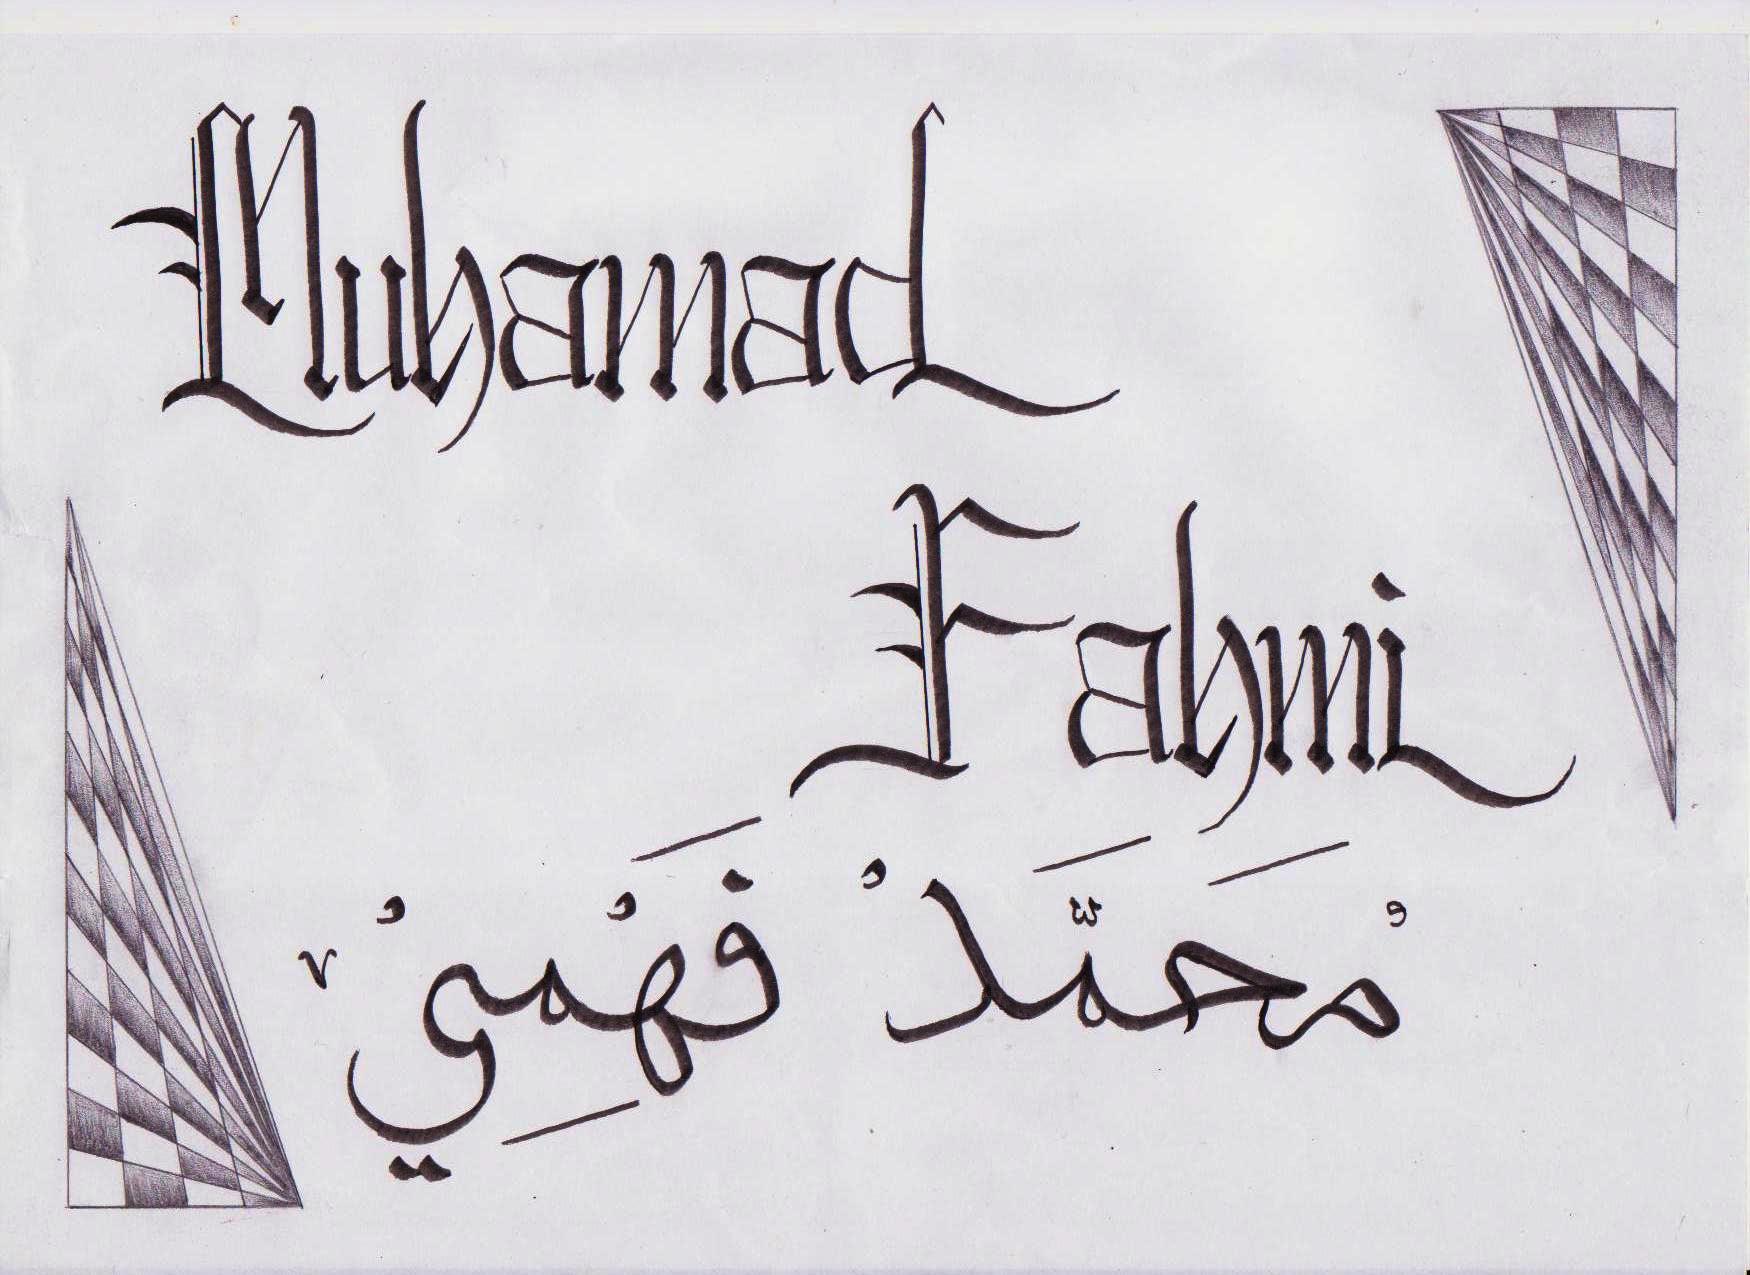 Muhamad
Fahmi
مُحَمَّدْ فَهْمِيْ